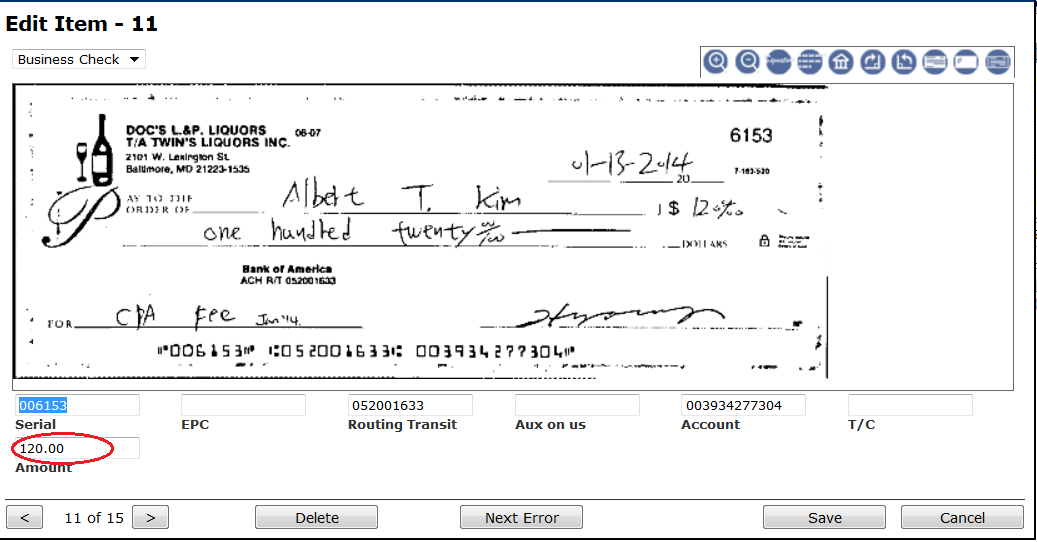 Edit Item - 11
Business Check
DOC'S L.&P. LIQUORS 06-07
T/A TWIN'S LIQUORS INC.
2101 W. Lexington St.
Baltimore, MD 21223-1535
6153
01-13-2014
20
7-163-520
PAY TO THE
ORDER OF Albert T. Kim $ 120 %00
one hundred twenty 00/100 DOLLARS
Bank of America
ACH R/T 052001633
FOR CPA Fee Jan '14.
⑈006153⑈ ⑆052001633⑆ 003934277304⑈
006153 052001633 003934277304
Serial EPC Routing Transit Aux on us Account T/C
120.00
Amount
< 11 of 15 > Delete Next Error Save Cancel